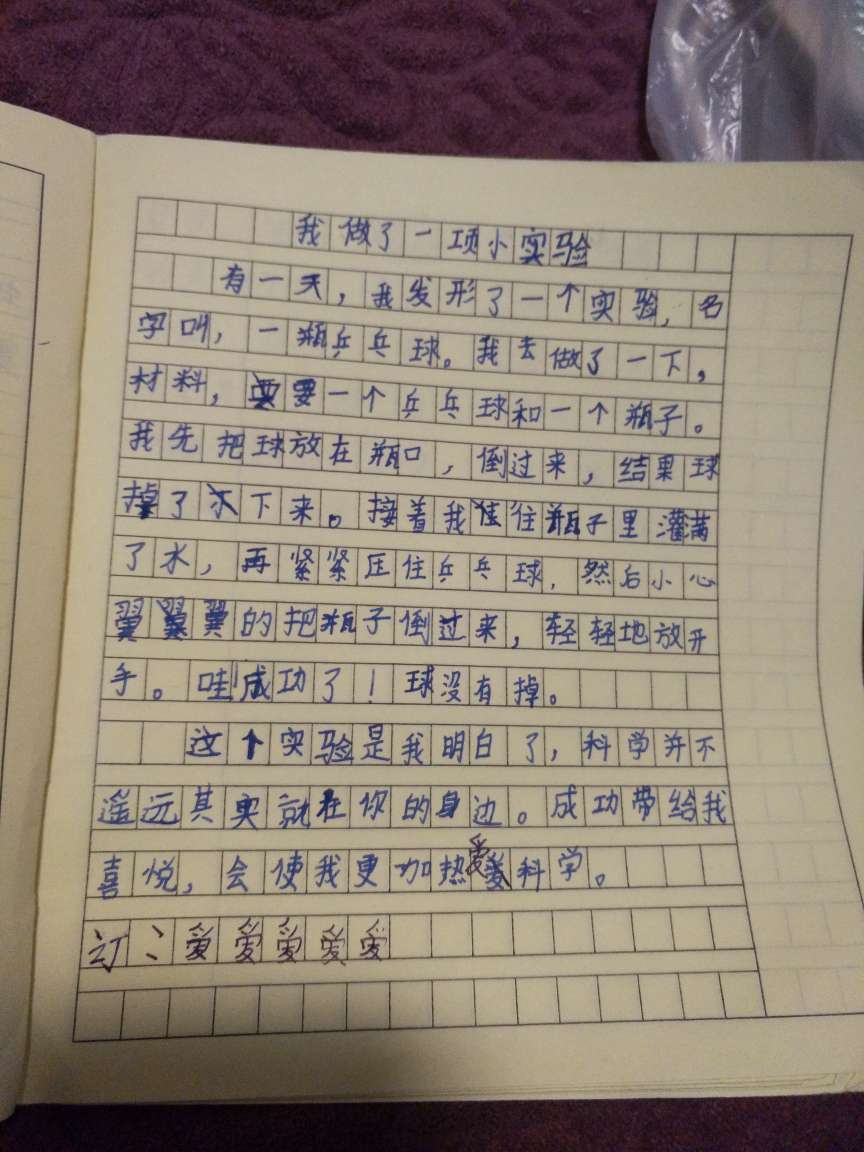 我做了一项小实验
有一天，我发形了一个实验，名
字叫，一瓶乒乓球。我去做了一下，
材料，要一个乒乓球和一个瓶子。
我先把球放在瓶口，倒过来，结果球
掉了下来。接着我往瓶子里灌满
了水，再紧紧压住乒乓球，然后小心
翼翼的把瓶子倒过来，轻轻地放开
手。哇！成功了！球没有掉。
这个实验是我明白了，科学并不
遥远其实就在你的身边。成功带给我
喜悦，会使我更加热爱科学。
订：爱爱爱爱爱